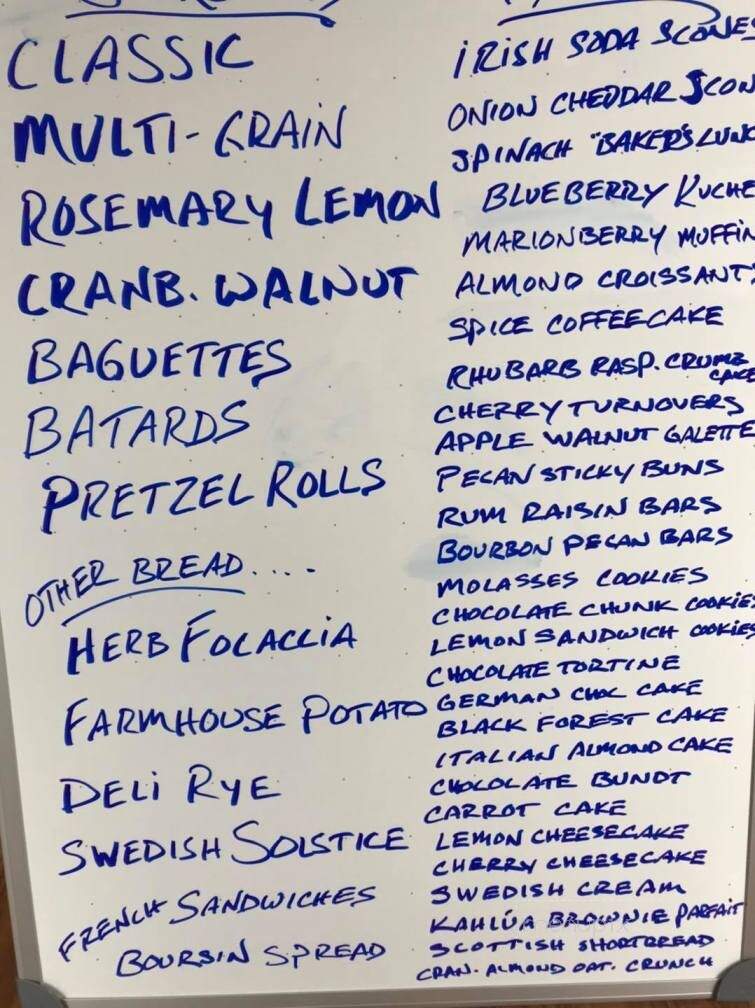 CLASSIC
MULTI-GRAIN
ROSEMARY LEMON
CRANB. WALNUT
BAGUETTES
BATARDS
PRETZEL ROLLS
OTHER BREAD....
HERB FOLACCIA
FARMHOUSE POTATO
DELI RYE
SWEDISH SOLSTICE
FRENCH SANDWICHES
BOURSIN SPREAD
IRISH SODA SCONES
ONION CHEDDAR SCON
SPINACH "BAKER'S LUNC
BLUEBERRY KUCHE
MARIONBERRY MUFFIN
ALMOND CROISSANTS
SPICE COFFEECAKE
RHUBARB RASP. CRUMB
CAKE
CHERRY TURNOVERS
APPLE WALNUT GALETTE
PECAN STICKY BUNS
RUM RAISIN BARS
BOURBON PECAN BARS
MOLASSES COOKIES
CHOCOLATE CHUNK COOKIES
LEMON SANDWICH COOKIES
CHOCOLATE TORTINE
GERMAN CHOC CAKE
BLACK FOREST CAKE
ITALIAN ALMOND CAKE
CHOCOLATE BUNDT
CARROT CAKE
LEMON CHEESECAKE
CHERRY CHEESECAKE
SWEDISH CREAM
KAHLÚA BROWNIE PARFAIT
SCOTTISH SHORTBREAD
CRAN. ALMOND OAT. CRUNCH